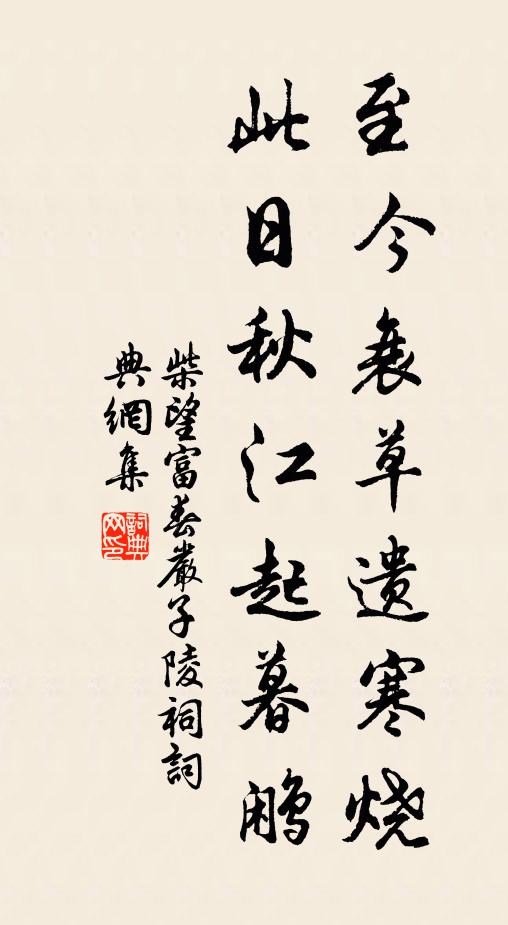 至今衰草遗寒烧
此日秋江起暮
柴望富春嚴子陵祠詞
典網集
詞典
网印